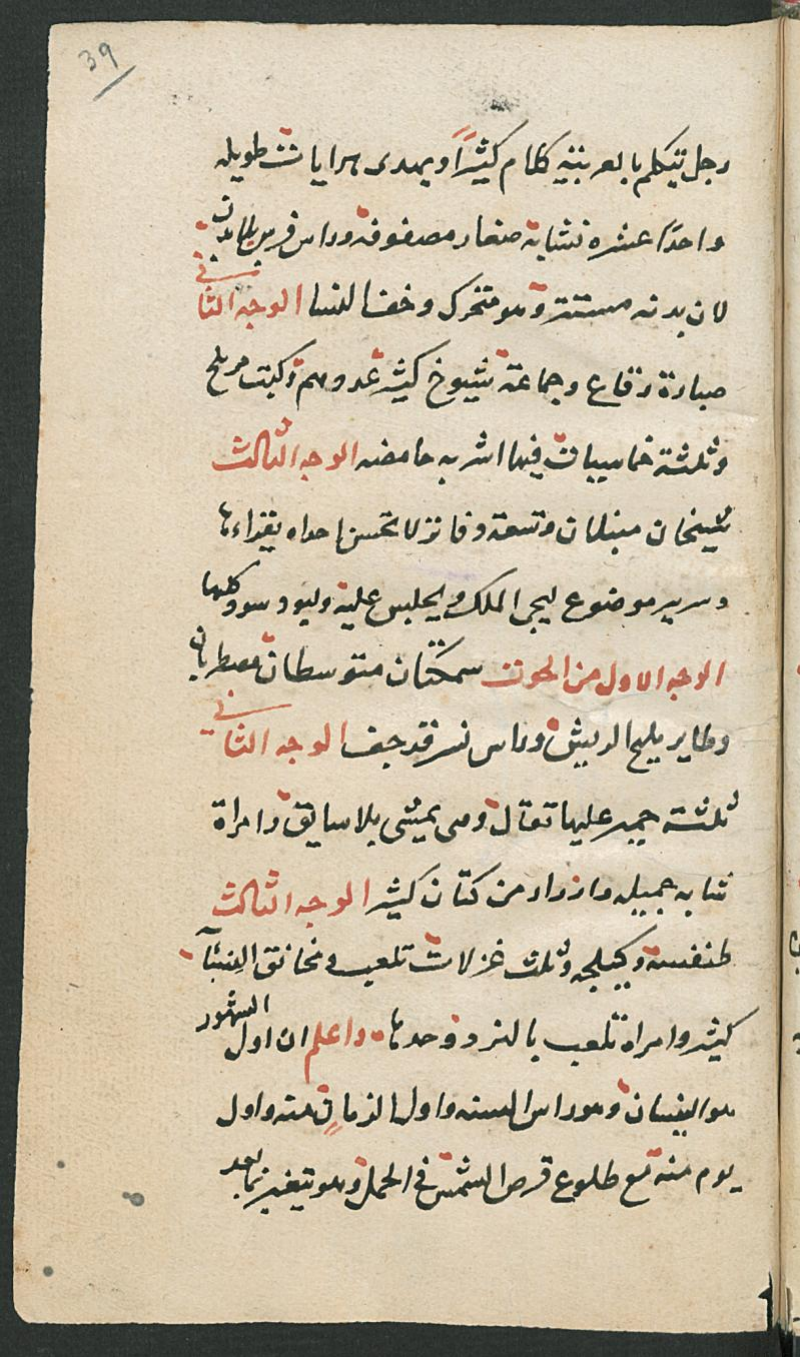 39
رجل يتكلم بالعربية كلام كثيراً ويهدى هدايا شت طويله
واحدا عشره نشابة صغار مصفوفة وراس فرس بلا بدن
لان بدنه مستتر وهو متحرك وخفا للنسا الوجه الثانى
صبارة رقاع وجماعة شيوخ كثير عددهم وكبت مربلح
وثلثة خماسيات فيها اشربه حامضه الوجه الثالث
شيخان مبتلان وتسعة دفاتر لا يحسن احد يقراءها
وسرير موضوع ليجى الملك ويجلس عليه ولبود سود كلها
الوجه الاول من الحوت سمكتان متوسطان مضطربان
وطاير مليح الريش وراس نسر قد جف الوجه الثانى
ثلثة حمير عليها تقال وهى يمشى بلا سايق وامراة
شابه جميله وازواد من كتان كثير الوجه الثالث
طنفسة وكيلجه وثلث غزلات تلعب ومخانق النساء
كثير وامراة تلعب بالنرد وحدها واعلم ان اول الشهور
هو النيسان وهو راس السنه واول الزمان منه واول
يوم منه مع طلوع قرص الشمس فى الحمل وهو يتغير بما بعد